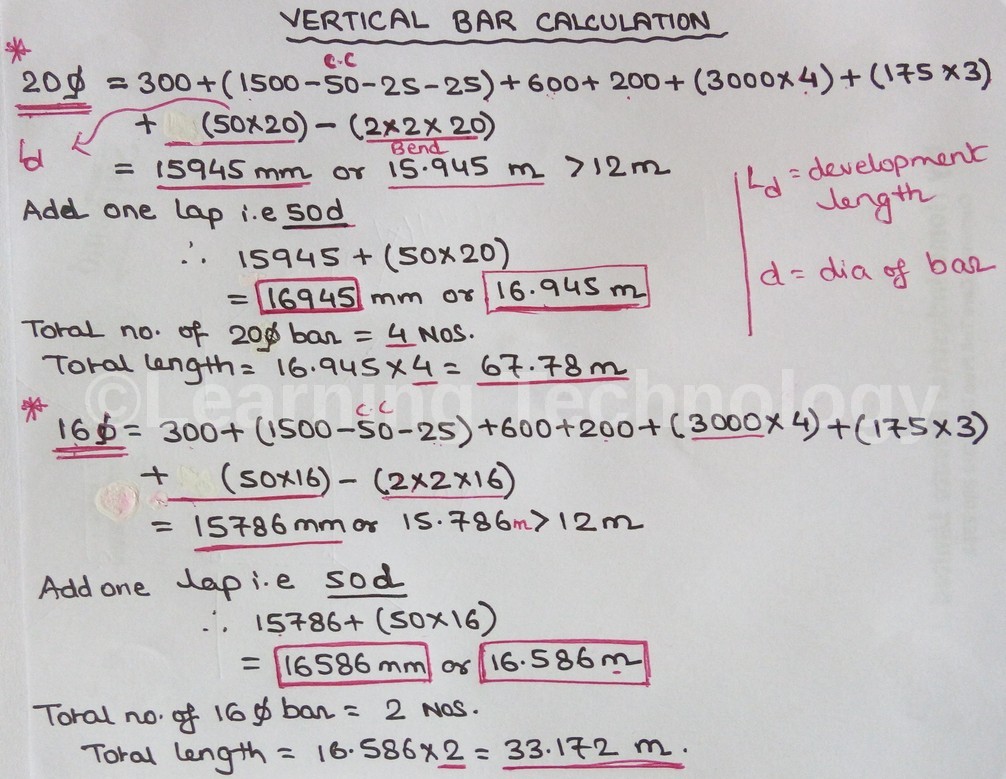 VERTICAL BAR CALCULATION
C.C
* 20ϕ = 300+(1500-50-25-25)+600+200+(3000×4)+(175×3)
+ (50×20) - (2×2×20)
Ld
Bend
= 15945 mm or 15.945 m >12m
Ld = development length
Add one lap i.e 50d
∴ 15945 + (50×20)
d = dia of bar
= 16945 mm or 16.945 m
Total no. of 20ϕ bar = 4 Nos.
Total length = 16.945×4 = 67.78 m
©Learning Technology
C C
* 16ϕ = 300+(1500-50-25)+600+200+(3000×4)+(175×3)
+ (50×16) - (2×2×16)
= 15786 mm or 15.786m>12m
Add one lap i.e 50d
∴ 15786+(50×16)
= 16586 mm or 16.586 m
Total no. of 16ϕ bar = 2 Nos.
Total length = 16.586×2 = 33.172 m.